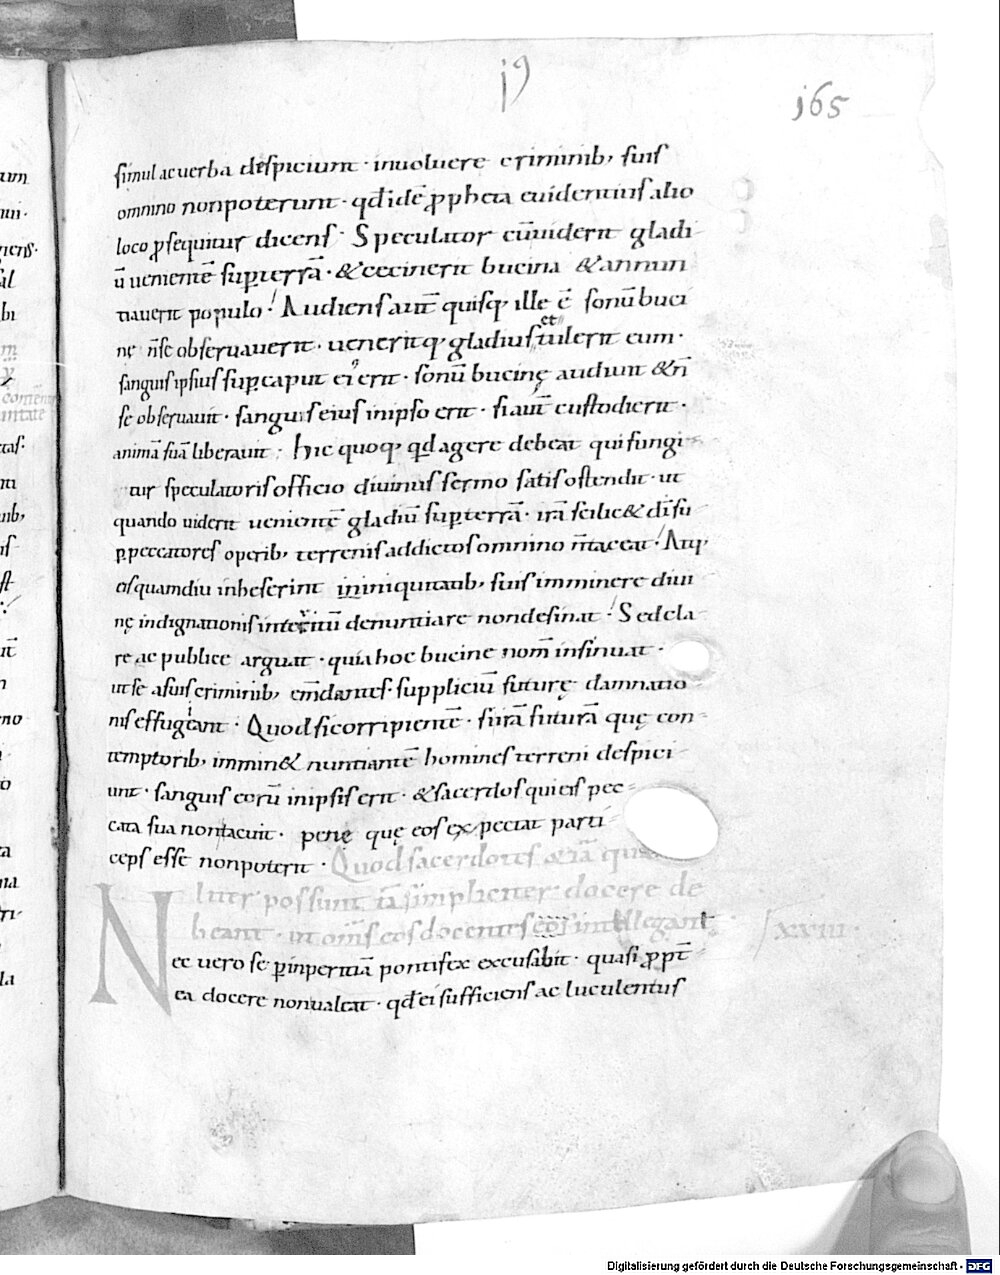 19
165
simul ac uerba despiciunt · inuoluere criminib; suis
omnino non poterunt · qđ idē ꝓpheta euidentius alio
loco ꝓsequitur dicens · Speculator cū uiderit gladi
ū uenientē sup terrā · & cecinerit bucina & annun
tiauerit populo · Audiens aut̄ quisq; ille ē sonū buci
nę n̄ se obseruauerit · ueneritq; gladius et tulerit eum ·
sanguis ipsius sup caput ei' erit · sonū bucinę audiuit & n̄
se obseruauit · sanguis eius in ipso erit · si aut̄ custodierit ·
animā suā liberauit · hic quoq; qđ agere debeat qui fungi
tur speculatoris officio diuinus sermo satis ostendit · ut
quando uiderit uenientē gladiū sup terrā · irā scilic& dī su
p peccatores operib; terrenis addictos omnino n̄ taceat · Atq;
eis quamdiu inheserint in iniquitatib; suis imminere diui
nę indignationis interitū denuntiare non desinat · Sed cla
re ac publice arguat · quia hoc bucine nom̄ insinuat ·
ut se a suis criminib; em̄dantes · suppliciū futurę damnatio
nis effugiant · Quod si corripientē · s irā futurā quę con
temptorib; immin& nuntiantē homines terreni despici
unt · sanguis eorū in ipsis erit · & sacerdos qui eis pec
cata sua non tacuit · penę quę eos expectat parti
ceps esse non poterit · Quod sacerdotes & iā
liter possunt tā simpliciter docere de
beant · ut om̄s eos docentes eos intellegant
xxiii ·
Nec uero se p inperitiā pontifex excusabit · quasi ꝓpt̄
ea docere non ualeat · qđ ei sufficiens ac luculentus
Digitalisierung gefördert durch die Deutsche Forschungsgemeinschaft - DFG